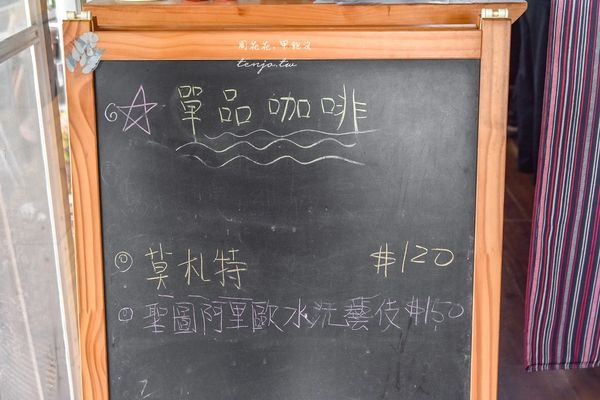 周花花，甲飽沒
tenjo.tw
單品咖啡
莫札特 $120
聖圖阿里歐水洗藝伎 $150